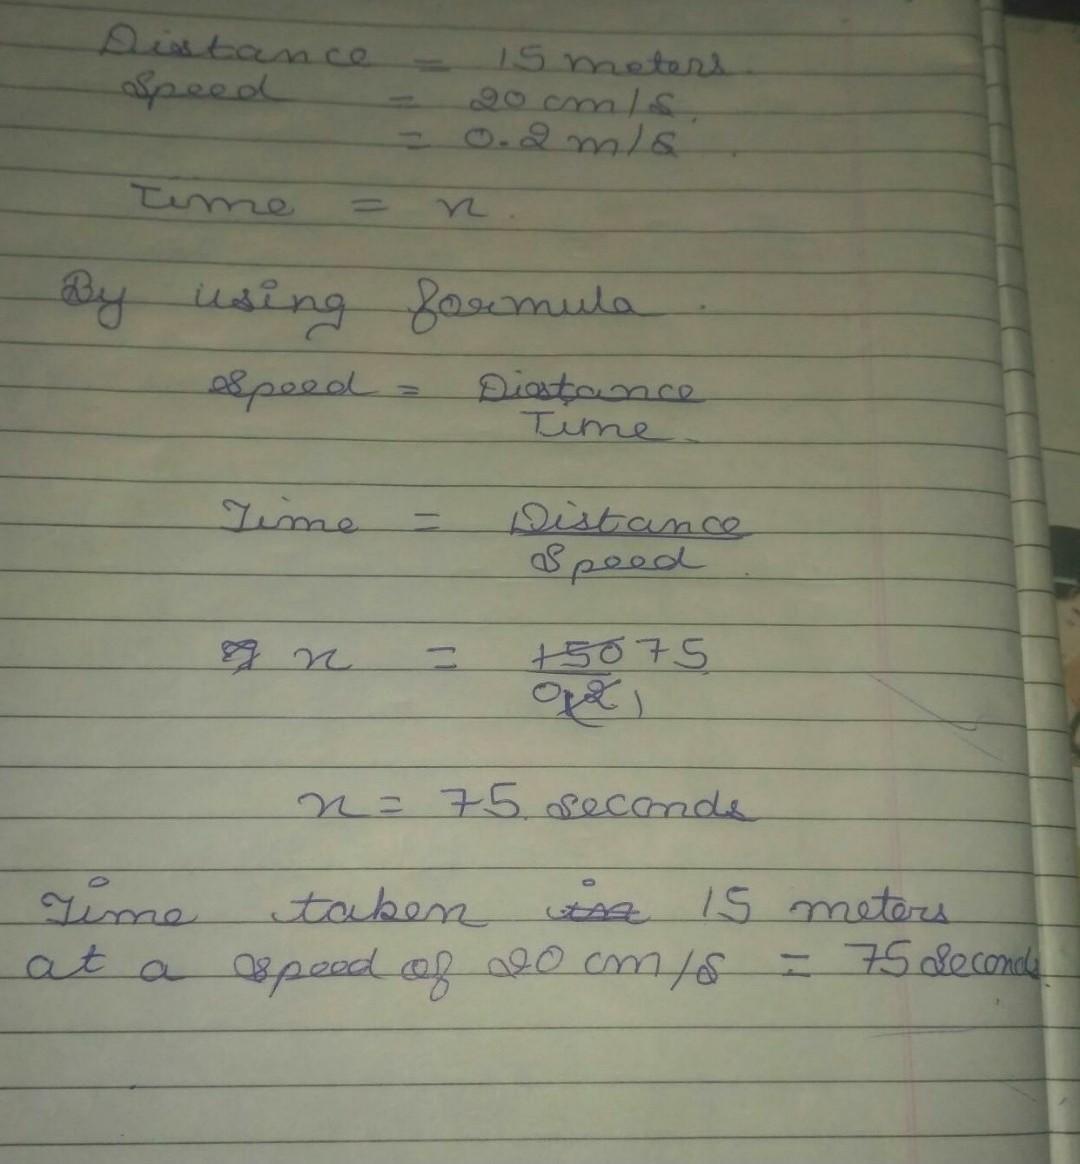 Distance = 15 meters.
Speed = 20 cm/s.
= 0.2 m/s.
Time = x.
By using formula.
Speed = Distance
Time.
Time = Distance
Speed.
x = 150 75
0.2 1
x = 75. seconds
Time taken in 15 meters
at a speed of 20 cm/s = 75 Seconds.